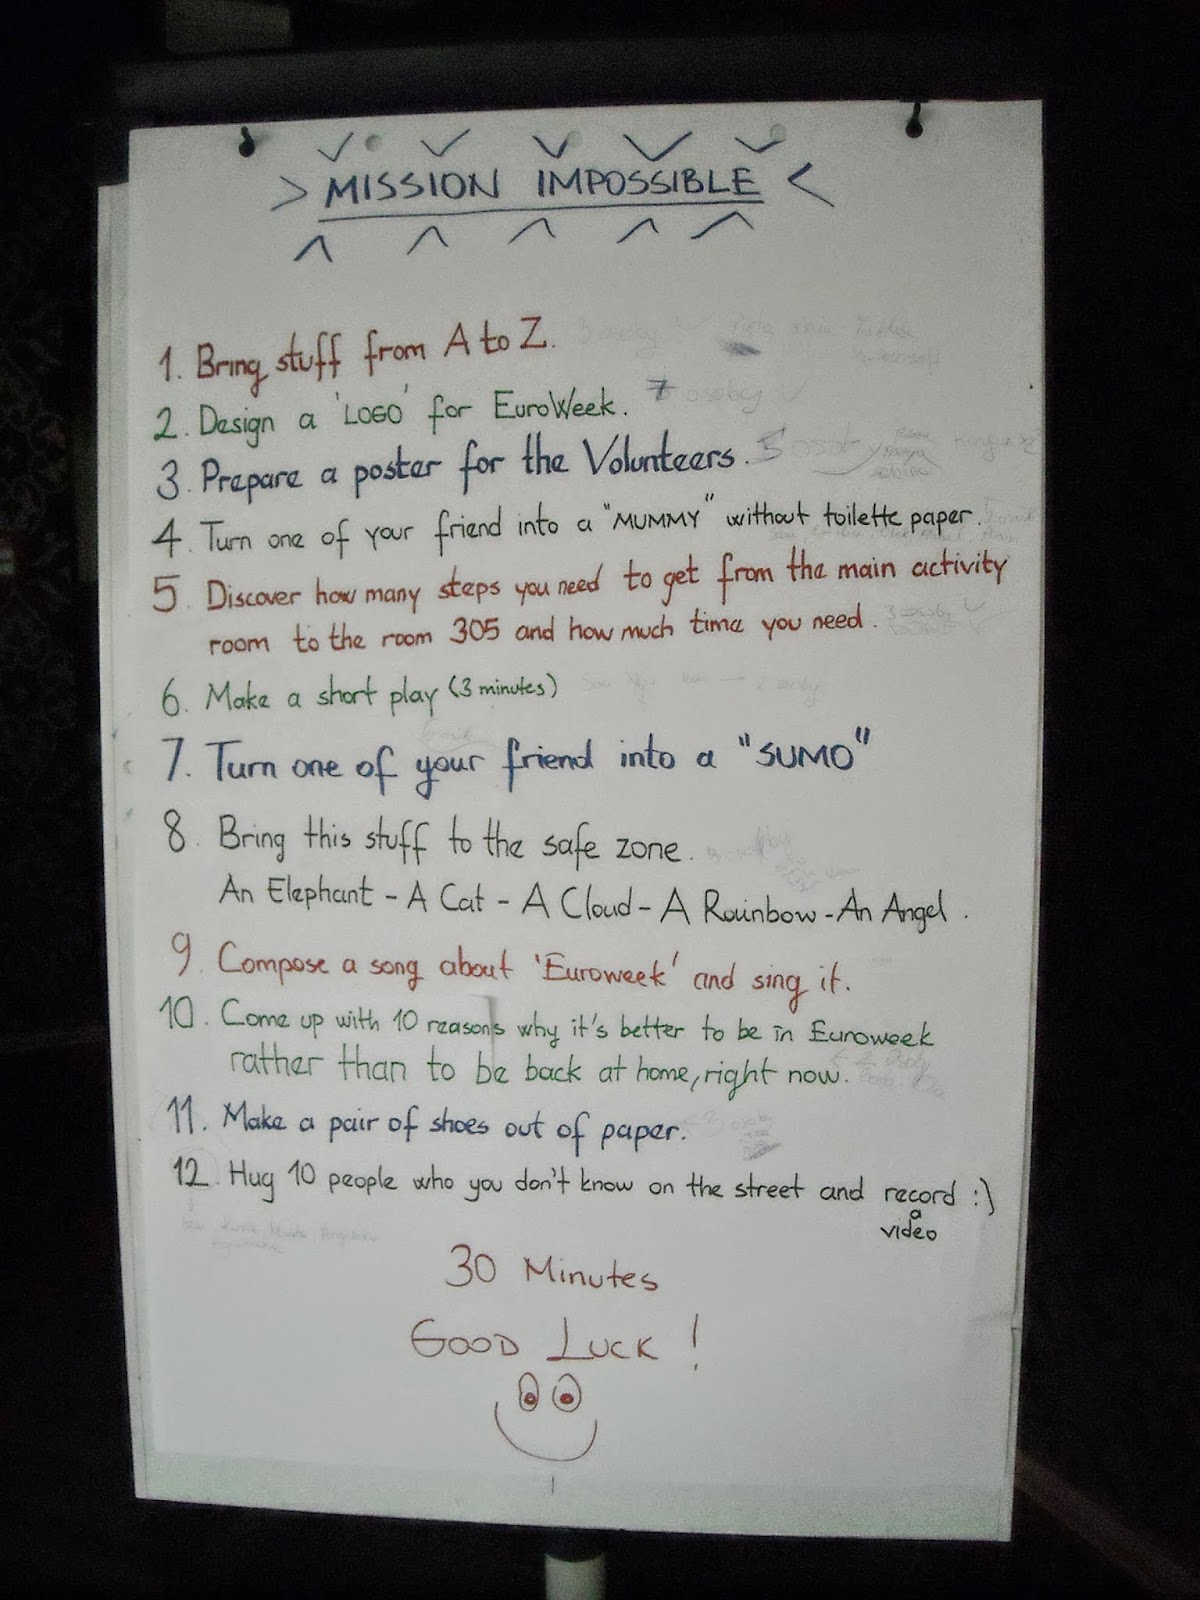 > MISSION IMPOSSIBLE <
1. Bring stuff from A to Z.
2. Design a 'LOGO' for EuroWeek. 7 osoby
3. Prepare a poster for the Volunteers. 5
4. Turn one of your friend into a "MUMMY" without toilette paper.
5. Discover how many steps you need to get from the main activity
room to the room 305 and how much time you need. 3 osoby
6. Make a short play (3 minutes)
7. Turn one of your friend into a "SUMO"
8. Bring this stuff to the safe zone.
An Elephant - A Cat - A Cloud - A Rainbow - An Angel.
9. Compose a song about 'Euroweek' and sing it.
10. Come up with 10 reasons why it's better to be in Euroweek
rather than to be back at home, right now.
11. Make a pair of shoes out of paper.
12. Hug 10 people who you don't know on the street and record :)
a
video
30 Minutes
GOOD LUCK !